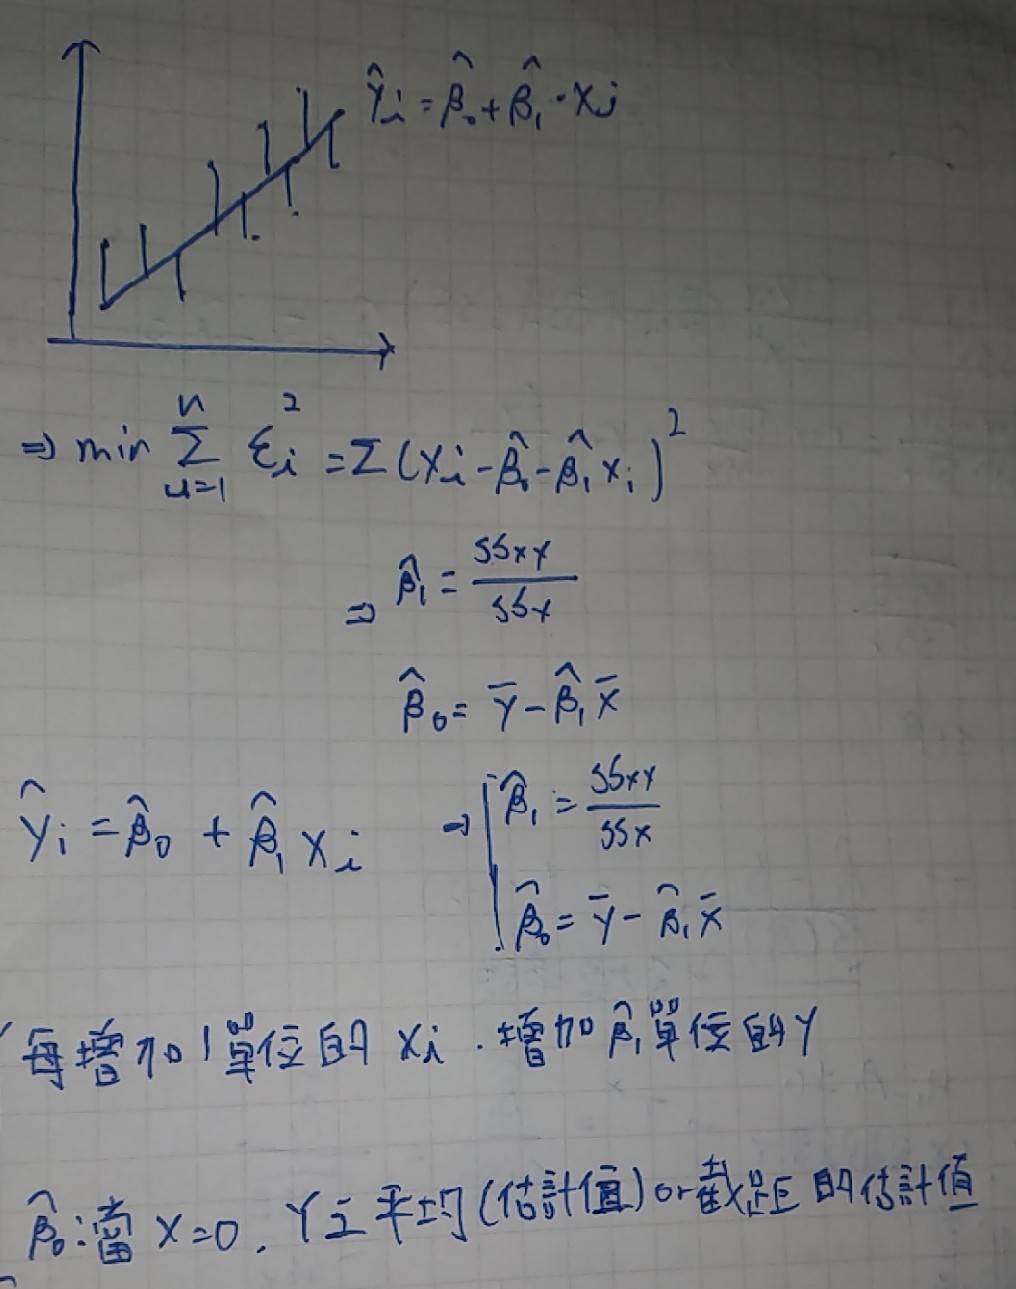 Ŷi = β̂₀ + β̂₁ · Xi
⇒ min Σ(i=1 to n) εi² = Σ(Yi - β̂₀ - β̂₁ Xi)²
⇒ β̂₁ = SSxy / SSx
β̂₀ = Ȳ - β̂₁ X̄
Ŷi = β̂₀ + β̂₁ Xi ⇒ β̂₁ = SSxy / SSx
β̂₀ = Ȳ - β̂₁ X̄
每增加1單位的 Xi . 增加 β̂₁ 單位的 Y
β̂₀ : 當 X=0 . Y之平均 (估計值) or 截距的估計值